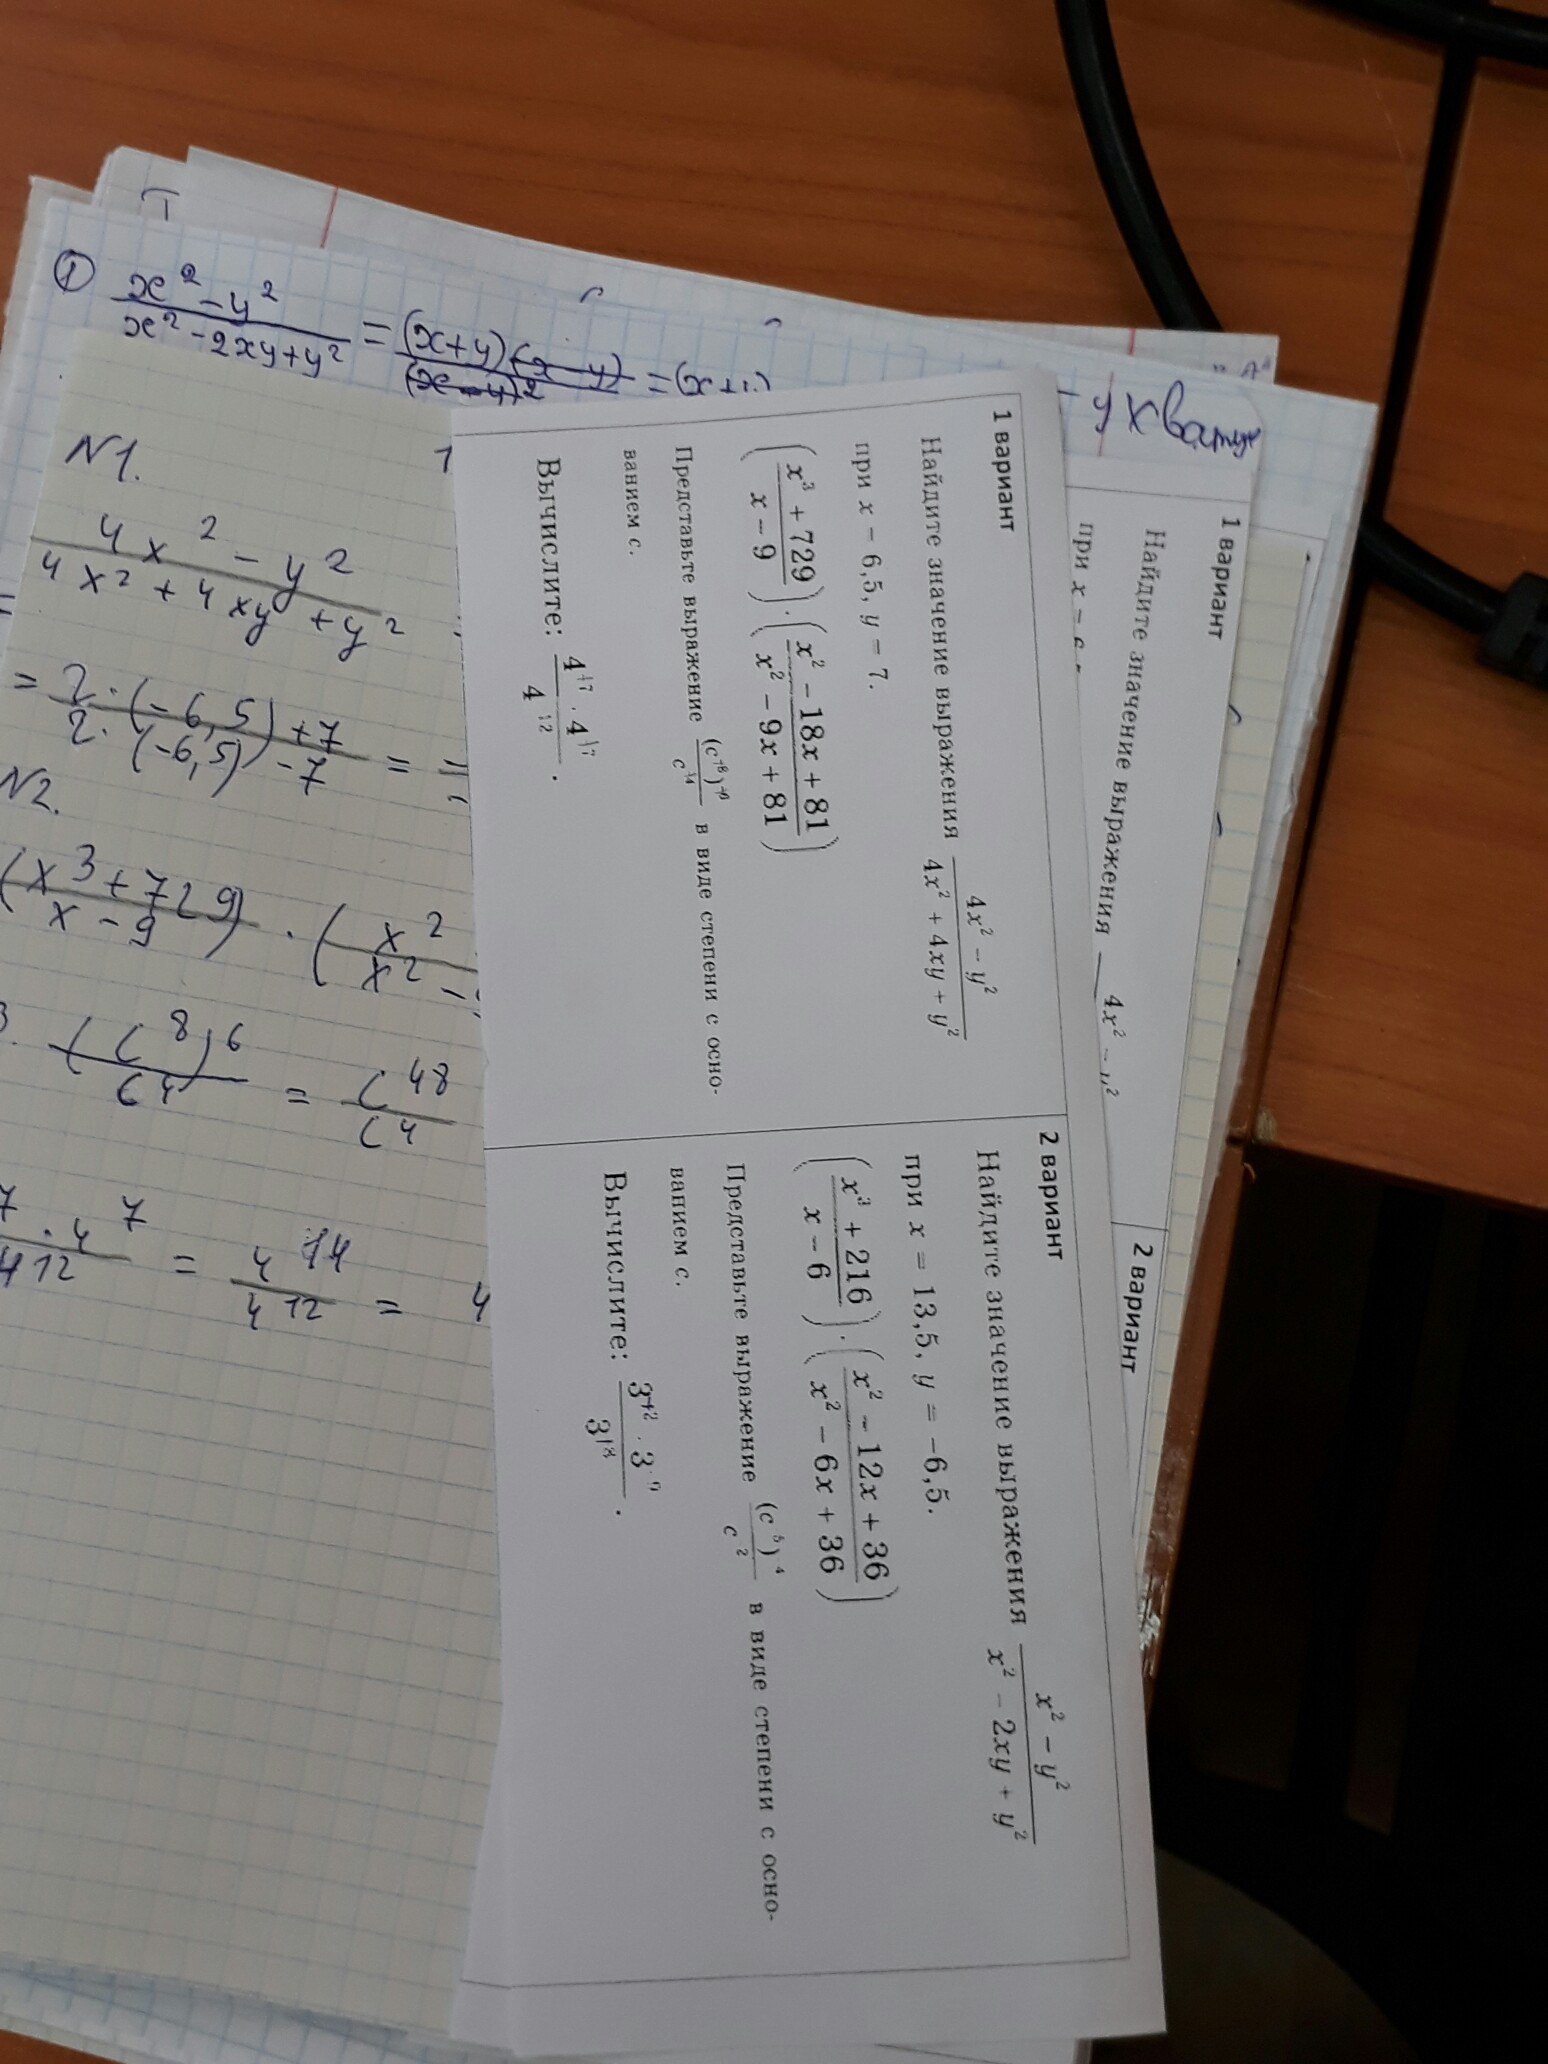 ① x² - y² / x² - 2xy + y² = (x+y)(x-y) / (x-y)² = (x+
N1.
4x² - y² / 4x² + 4xy + y²
= 2·(-6,5)+7 / 2·(-6,5)-7 =
N2.
(x³+729 / x-9) · (x² / x² -
(c⁸)⁶ / c⁴ = c⁴⁸ / c⁴
7 · 4⁷ / 4¹² = 4¹⁴ / 4¹² = 4
1 вариант
Найдите значение выражения 4x² - y² / 4x² + 4xy + y²
при x - 6,5, y = 7.
(x³ + 729 / x - 9) · (x² - 18x + 81 / x² - 9x + 81)
Представьте выражение (c в виде степени с осно-
ванием c.
Вычислите: 4⁺⁷ · 4 / 4¹² .
2 вариант
Найдите значение выражения x² - y² / x² - 2xy + y²
при x = 13,5, y = -6,5.
(x³ + 216 / x - 6) · (x² - 12x + 36 / x² - 6x + 36)
Представьте выражение (c в виде степени с осно-
ванием c.
Вычислите: 3 · 3 / 3 .
1 вариант
Найдите значение выражения 4x² - y²
при x -
2 вариант